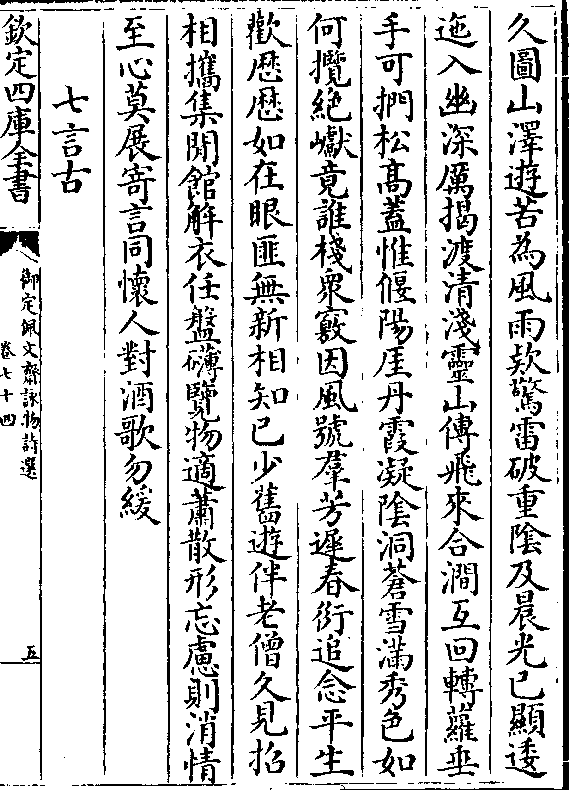 久圖山澤遊苦為風雨欵驚雷破重陰及晨光已顯逶
迤入幽深厲揭渡清淺靈山傳飛來合澗互回轉蘿垂
手可捫松髙蓋惟偃陽厓丹霞凝陰洞蒼雪滿秀色如
何攬絶巘竟誰棧衆竅因風號羣芳遲春衍追念平生
歡歴歴如在眼匪無新相知已少舊遊伴老僧久見招
相攜集閒館解衣任盤礴覽物適蕭散形忘慮則消情
至心莫展寄言同懷人對酒歌勿緩
七言古
欽定四庫全書
御定佩文齋詠物詩選
卷七十四
五